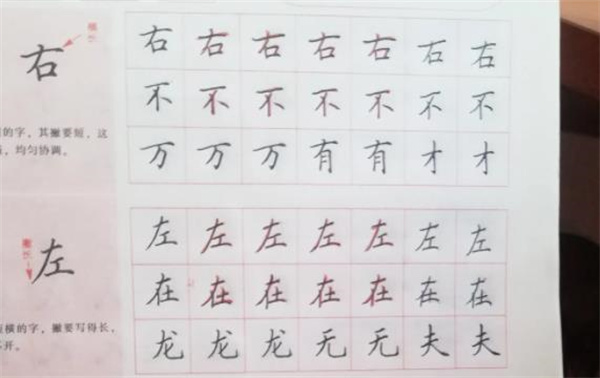 右
右 右 右 右 右 右 右
不 不 不 不 不 不 不
万 万 万 有 有 才 才
的字，其撇要短，这
，均匀协调。
左
左 左 左 左 左 左 左
在 在 在 在 在 在 在
龙 龙 龙 无 无 夫 夫
横的字，撇要写得长，
开。